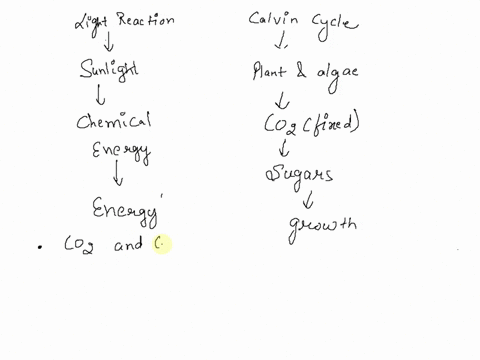 Light Reaction
Sunlight
Chemical
Energy
Energy
Calvin Cycle
Plant & algae
CO2 (fixed)
Sugars
growth
• CO2 and C